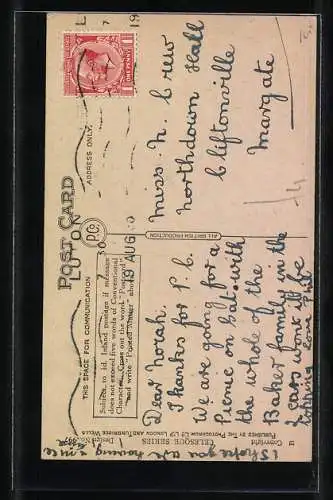 POST CARD
THIS SPACE FOR COMMUNICATION
ADDRESS ONLY.
Subject to 1d. inland postage if message
does not exceed five words of Conventional
Character. Cross out the word "Postcard"
and write "Printed Matter" above
LUTON
19 AUG
ONE PENNY
Dear Norah.
Thanks for P.C.
We are going for a
Picnic on Sat. with
the whole of the
Baker family in the
2 cars wont it be
ripping Love Phil
I hope you are having a nice
Miss. N. Crew
Northdown Hall
Cliftonville
Margate
ALL BRITISH PRODUCTION
CELESQUE SERIES
Copyright.
PUBLISHED BY THE PHOTOCHROM CO. LTD. LONDON AND TUNBRIDGE WELLS
Design No.